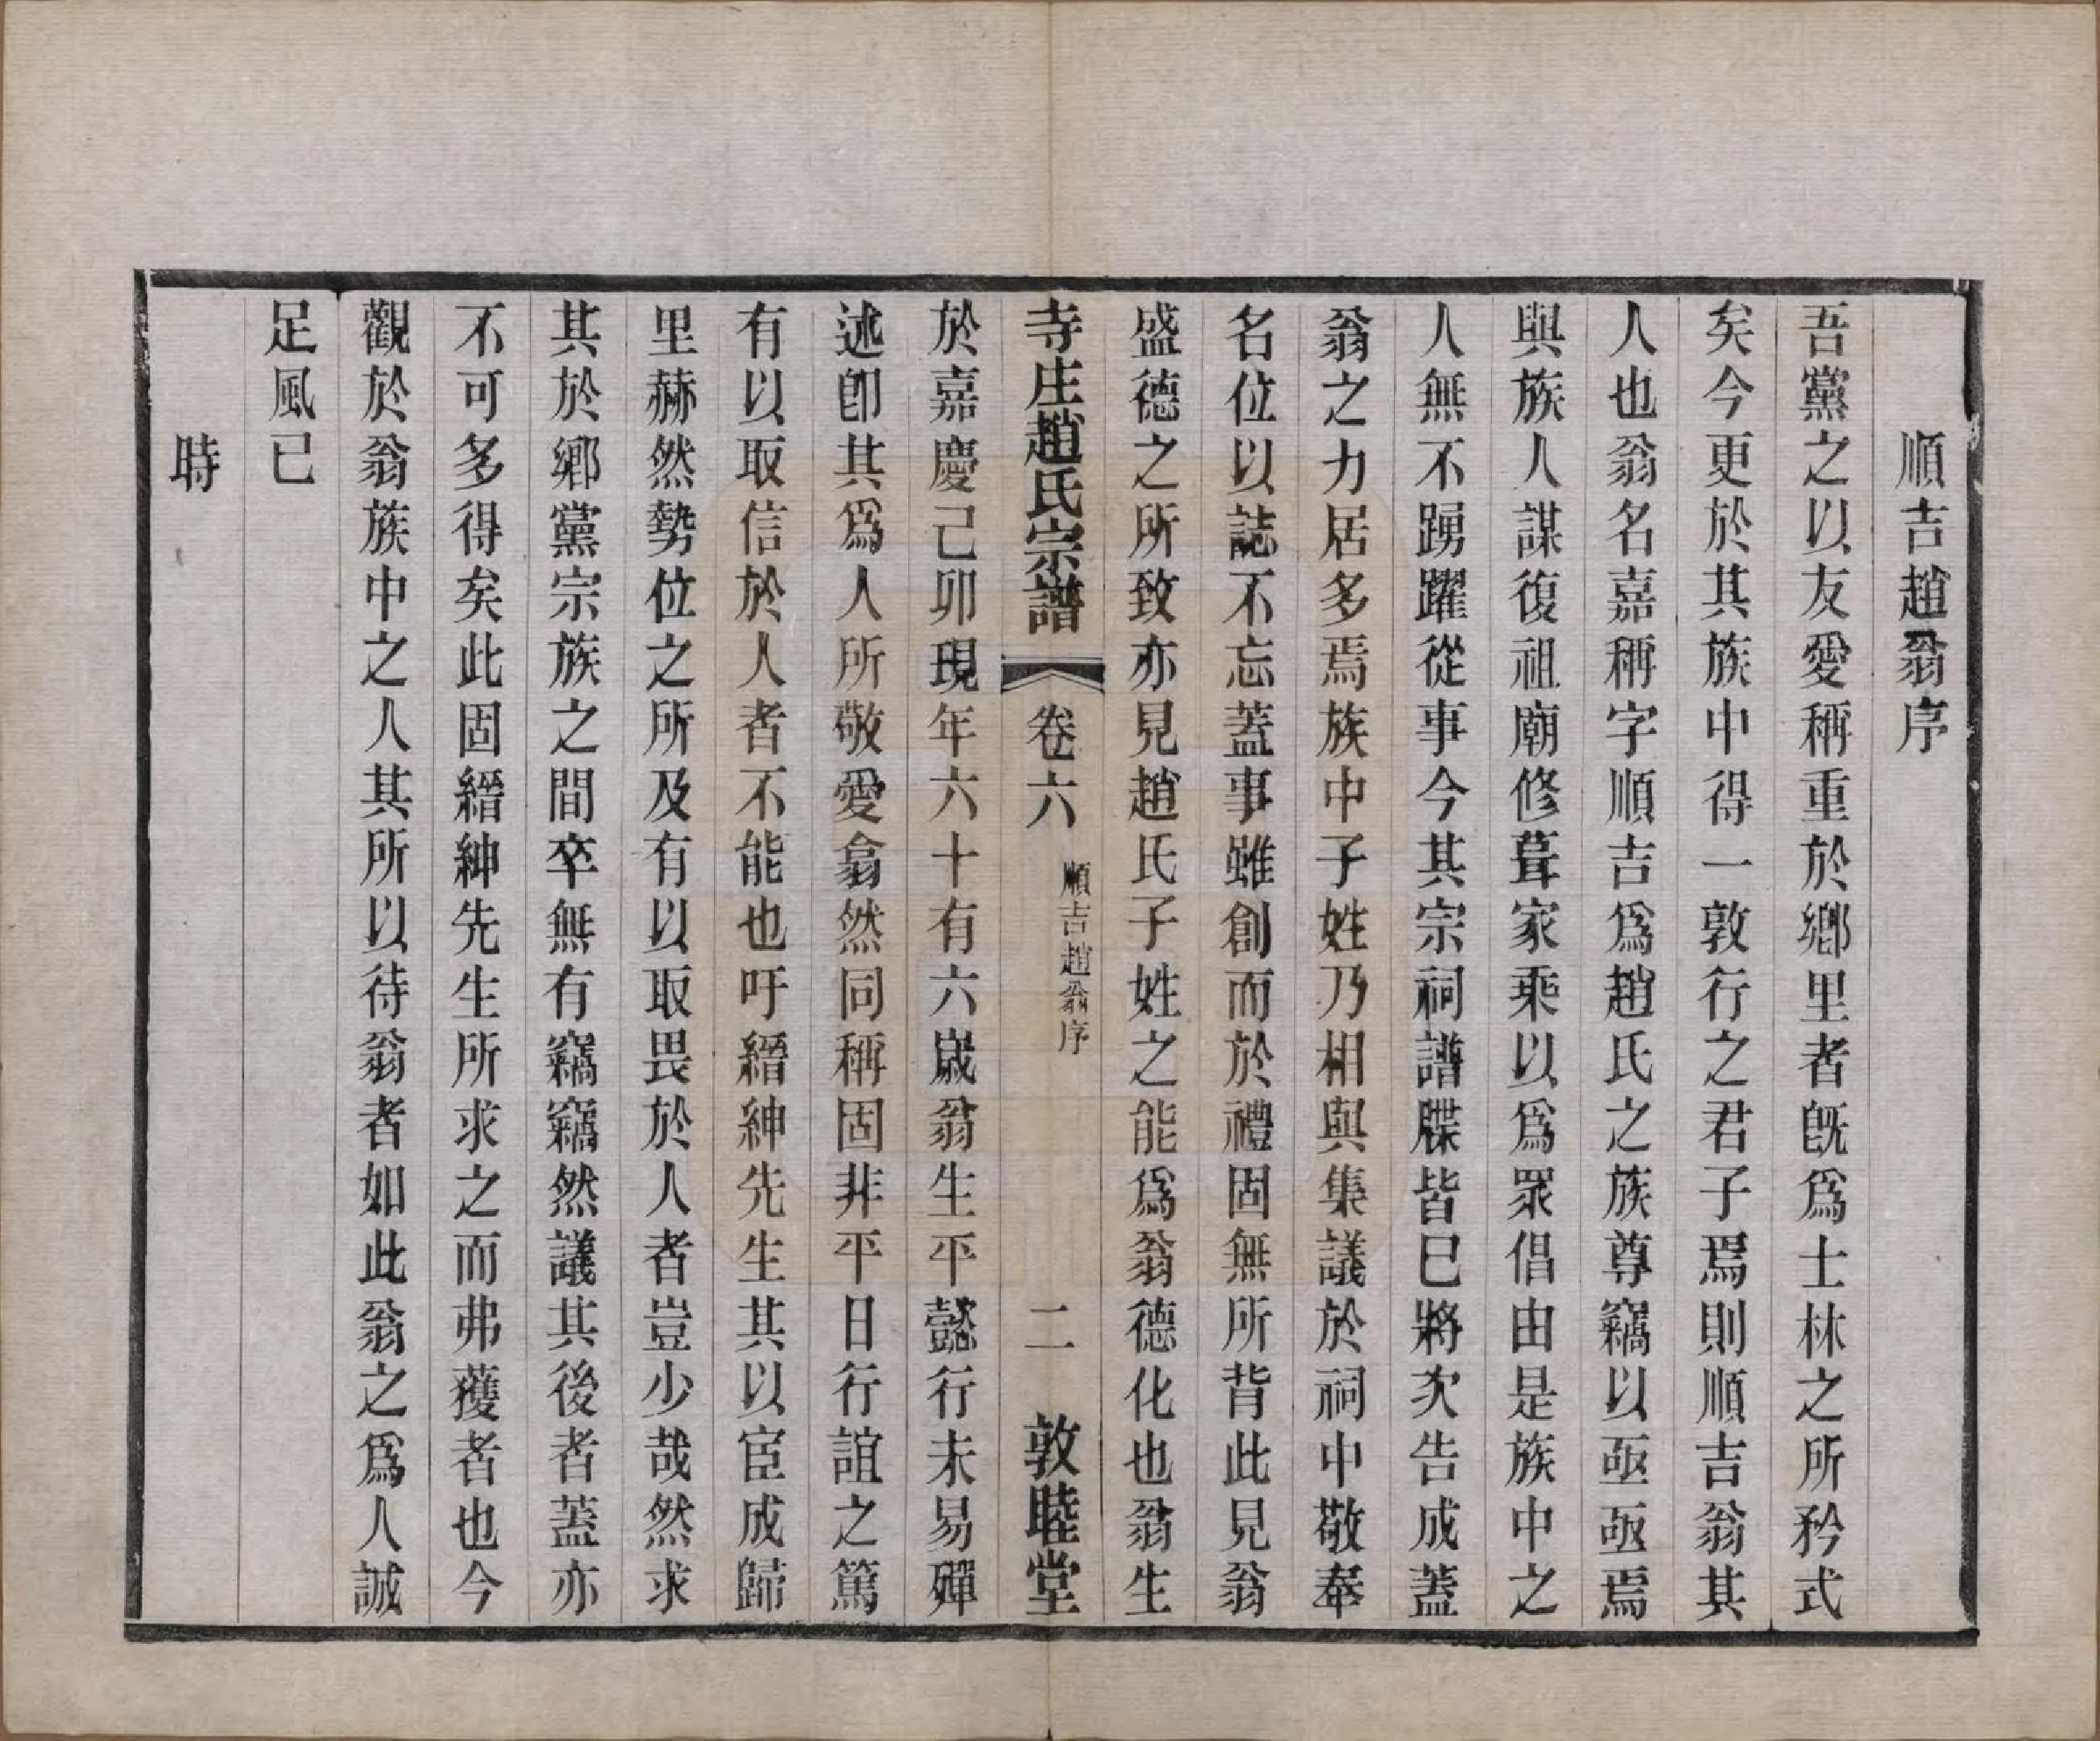 順吉趙翁序
吾黨之以友愛稱重於鄉里者旣爲士林之所矜式
矣今更於其族中得一敦行之君子焉則順吉翁其
人也翁名嘉稱字順吉爲趙氏之族尊竊以亟亟焉
與族人謀復祖廟修葺家乘以爲眾倡由是族中之
人無不踴躍從事今其宗祠譜牒皆已將次告成蓋
翁之力居多焉族中子姓乃相與集議於祠中敬奉
名位以誌不忘蓋事雖創而於禮固無所背此見翁
盛德之所致亦見趙氏子姓之能爲翁德化也翁生
寺庄趙氏宗譜 卷六 順吉趙翁序 二 敦睦堂
於嘉慶己卯現年六十有六歲翁生平懿行未易殫
述卽其爲人所敬愛翕然同稱固非平日行誼之篤
有以取信於人者不能也吁縉紳先生其以宦成歸
里赫然勢位之所及有以取畏於人者豈少哉然求
其於鄉黨宗族之間卒無有竊竊然議其後者蓋亦
不可多得矣此固縉紳先生所求之而弗獲者也今
觀於翁族中之人其所以待翁者如此翁之爲人誠
足風已
時